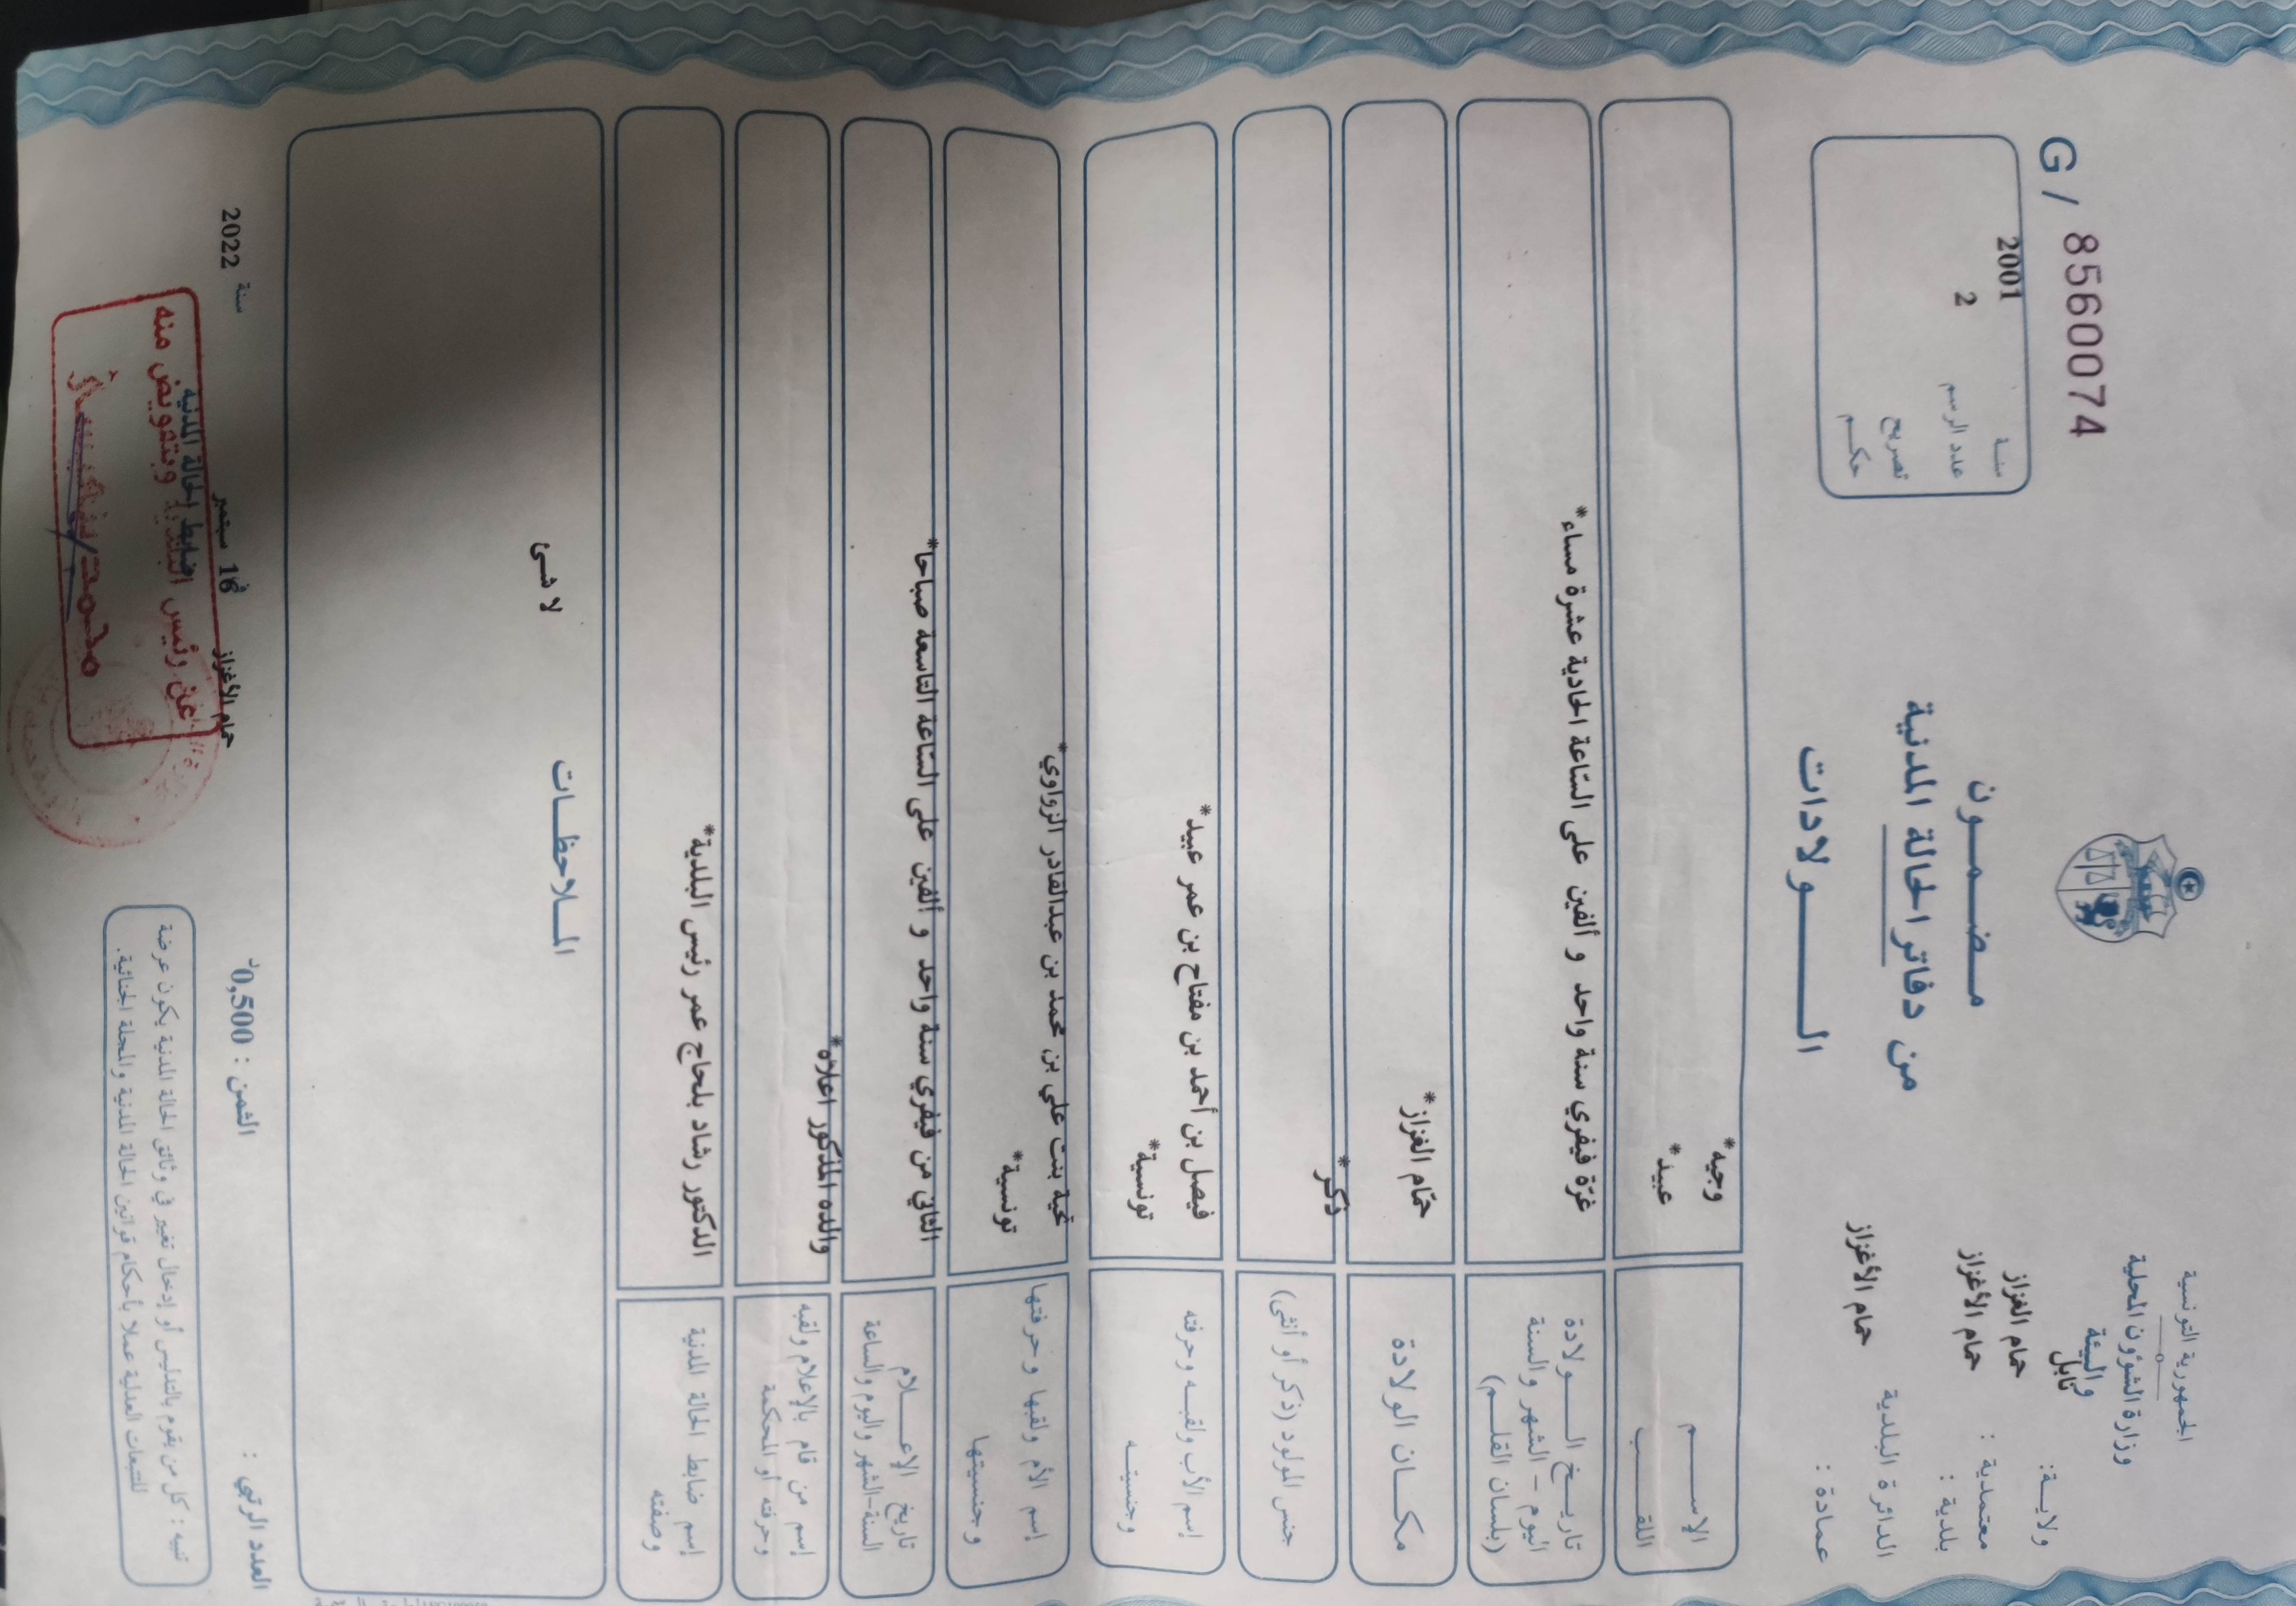 الجمهورية التونسية
وزارة الشؤون المحلية
والبيئة
ولايــة: نابل
معتمدية : حمام الغزاز
بلدية : حمام الأغزاز
الدائرة البلدية
عمادة : حمام الأغزاز
مـضـمـون
من دفاتر الحالة المدنية
الــولادات
G / 8560074
سنـة 2001
عدد الرسم 2
تصريح
حكـم
الإســم وجيه*
اللقــب عبيد*
تاريـخ الــولادة
اليوم - الشهر والسنة
(بلسان القلـم)
غرّة فيفري سنة واحد و ألفين على السّاعة الحادية عشرة مساء*
مكــان الولادة حمّام الغزاز*
جنس المولود (ذكر أو أنثى) ذكر*
إسم الأب ولقبـه وحرفته فيصل بن أحمد بن مفتاح بن عمر عبيد*
وجنسيتـه تونسية*
إسم الأم ولقبها وحرفتها بنت علي بن محمد بن عبدالقادر الزواوي*
وجنسيتها تونسية*
تاريخ الإعــلام
السنة-الشهر واليوم والساعة
الثاني من فيفري سنة واحد و ألفين على السّاعة التاسعة صباحا*
إسم من قام بالإعلام ولقبه
وحرفته أو المحكمة
والده المذكور اعلاه*
إسم ضابط الحالة المدنية
وصفته
الدكتور رشاد بلحاج عمر رئيس البلدية*
المـلاحظـات
لا شئ
العدد الرتبي :
الثمن : 0,500د
حمام الأغزاز في 16 سبتمبر سنة 2022
ضابط الحالة المدنية
عن رئيس البلدية وبتفويض منه
تنبيه : كل من يقوم بالتدليس أو إدخال تغيير في وثائق الحالة المدنية يكون عرضة
للتتبعات العدلية عملا بأحكام قوانين الحالة المدنية والمجلة الجنائية.